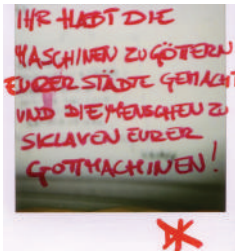 IHR HABT DIE
MASCHINEN ZU GÖTTERN
EURER STÄDTE GEMACHT
UND DIE MENSCHEN ZU
SKLAVEN EURER
GOTTMACHINEN!